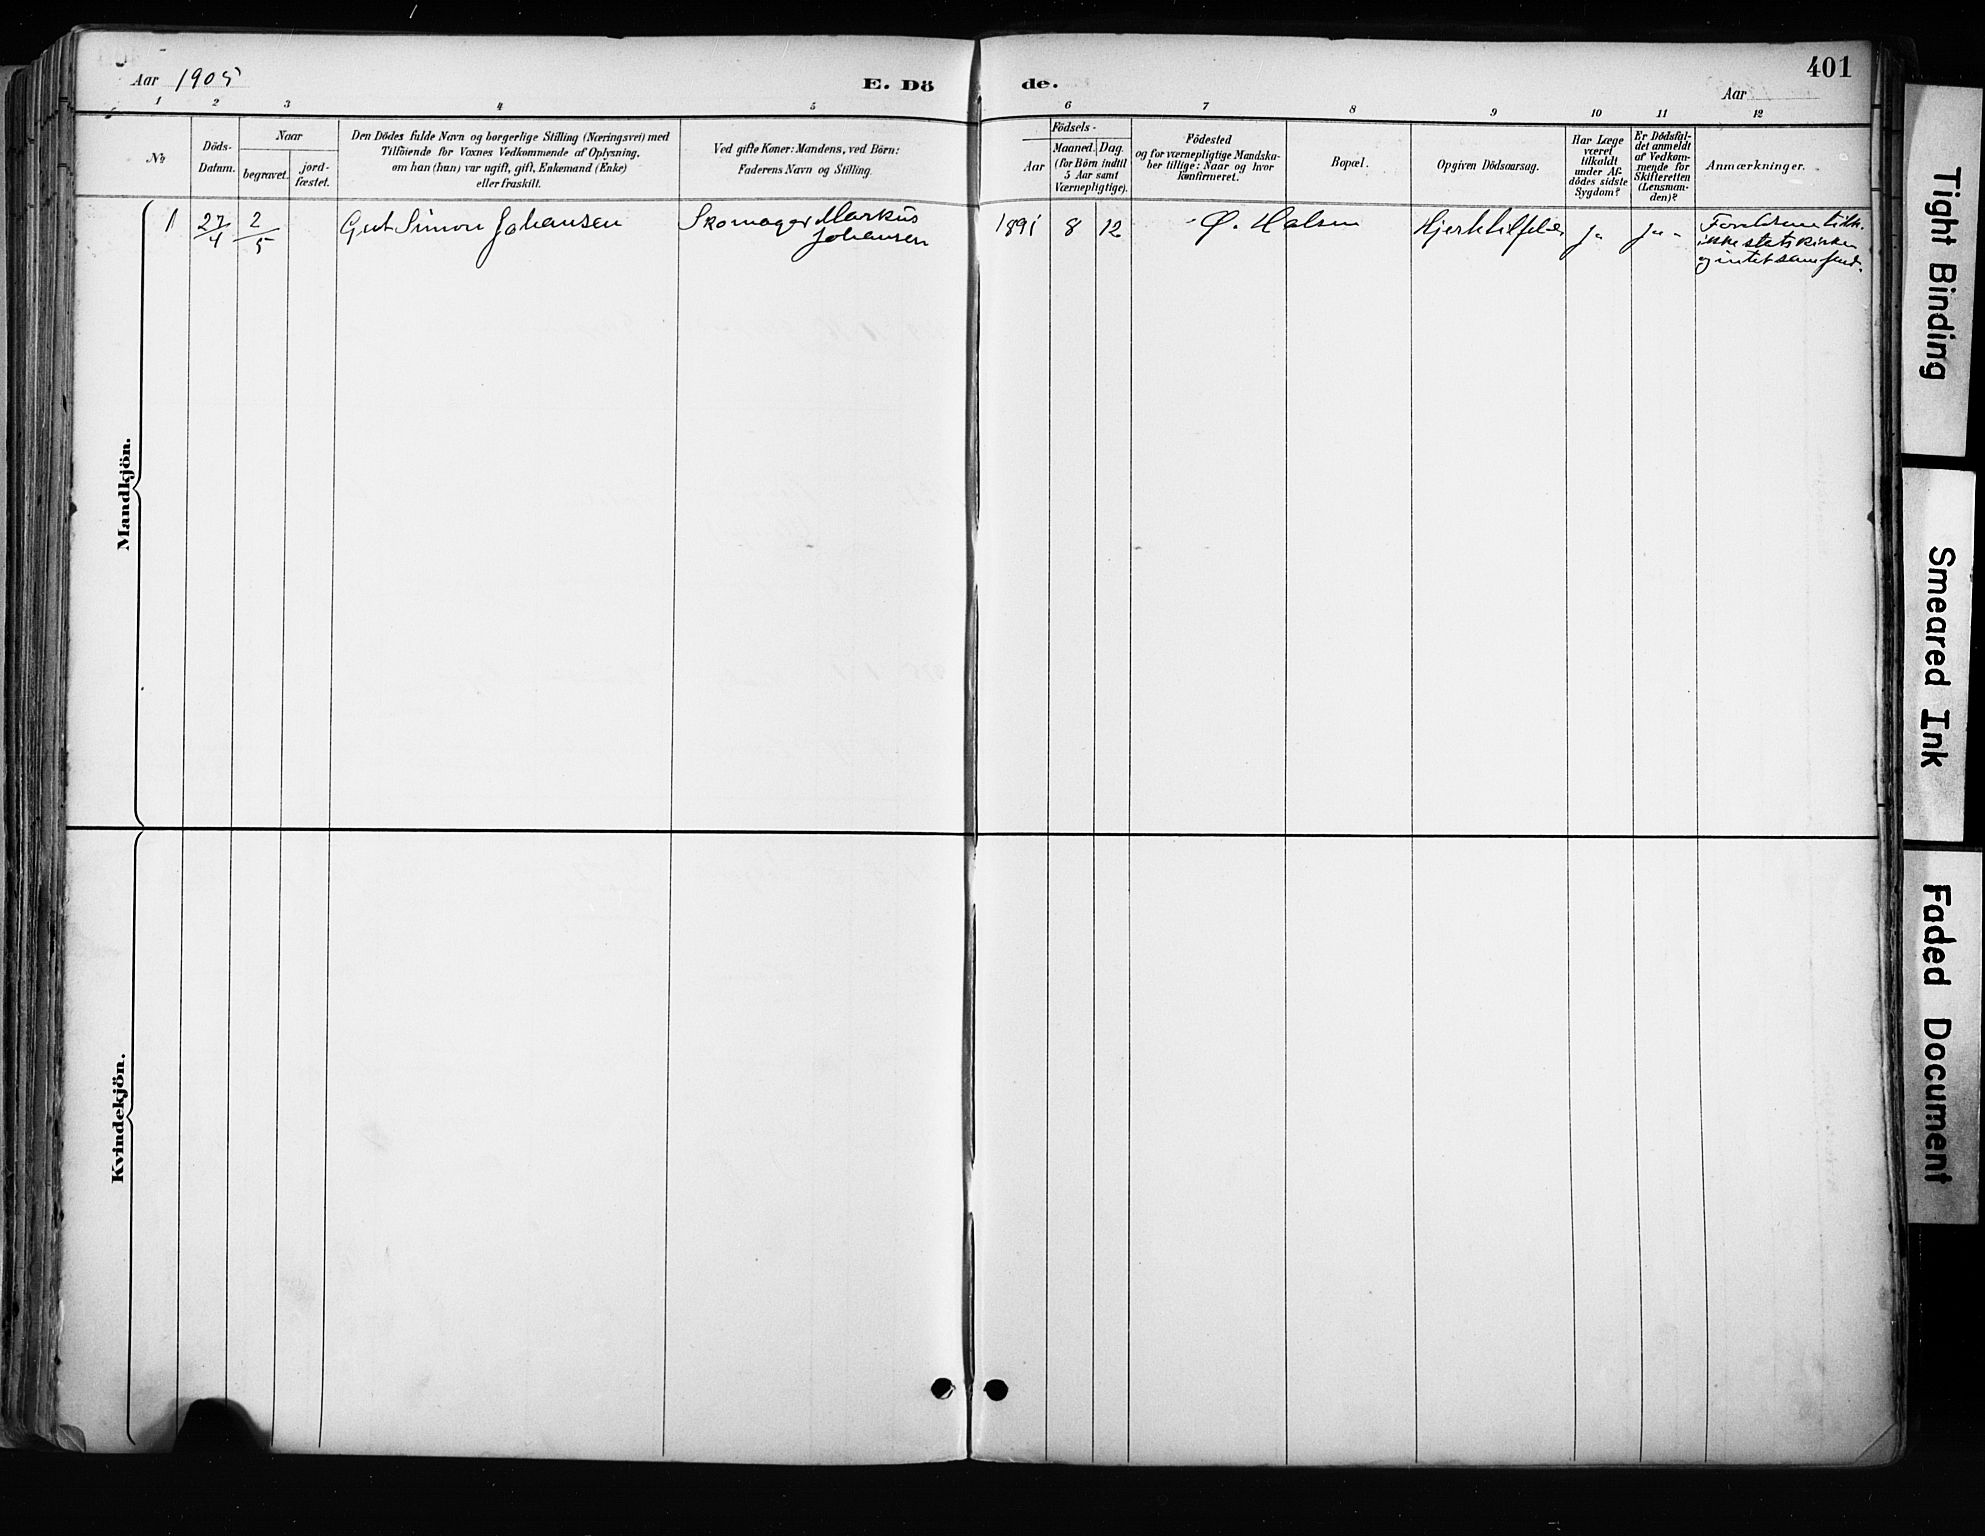 Aar 1905
E. Dö
de.
401
Aar
1
2
3
4
5
6
7
8
9
10
11
12
No
Döds-
Datum.
Naar
begravet.
jord-
fæstet.
Den Dödes fulde Navn og borgerlige Stilling (Næringsvei) med
Tilföiende for Voxnes Vedkommende af Oplysning,
om han (hun) var ugift, gift, Enkemand (Enke)
eller fraskilt.
Ved gifte Koner: Mandens, ved Börn:
Faderens Navn og Stilling.
Födsels-
Aar
Maaned. Dag.
(for Börn indtil
5 Aar samt
Værnepligtige).
Födested
og for værnepligtige Mandska-
ber tillige: Naar og hvor
konfirmeret.
Bopæl.
Opgiven Dödsaarsag.
Har Læge
været
tilkaldt
under Af-
dödes sidste
Sygdom?
Er Dödsfal-
det anmeldt
af Vedkom-
mende for
Skifteretten
(Lensman-
den)?
Anmærkninger.
1
27/4
2/5
Gut Simon Johansen
Skomager Markus
Johansen
1891
8
12
Ø. Halsen
Ja
Ja
ikke statskirken
og intet samfund.
Mandkjön.
Kvindekjön.
Tight Binding
Smeared Ink
Faded Document